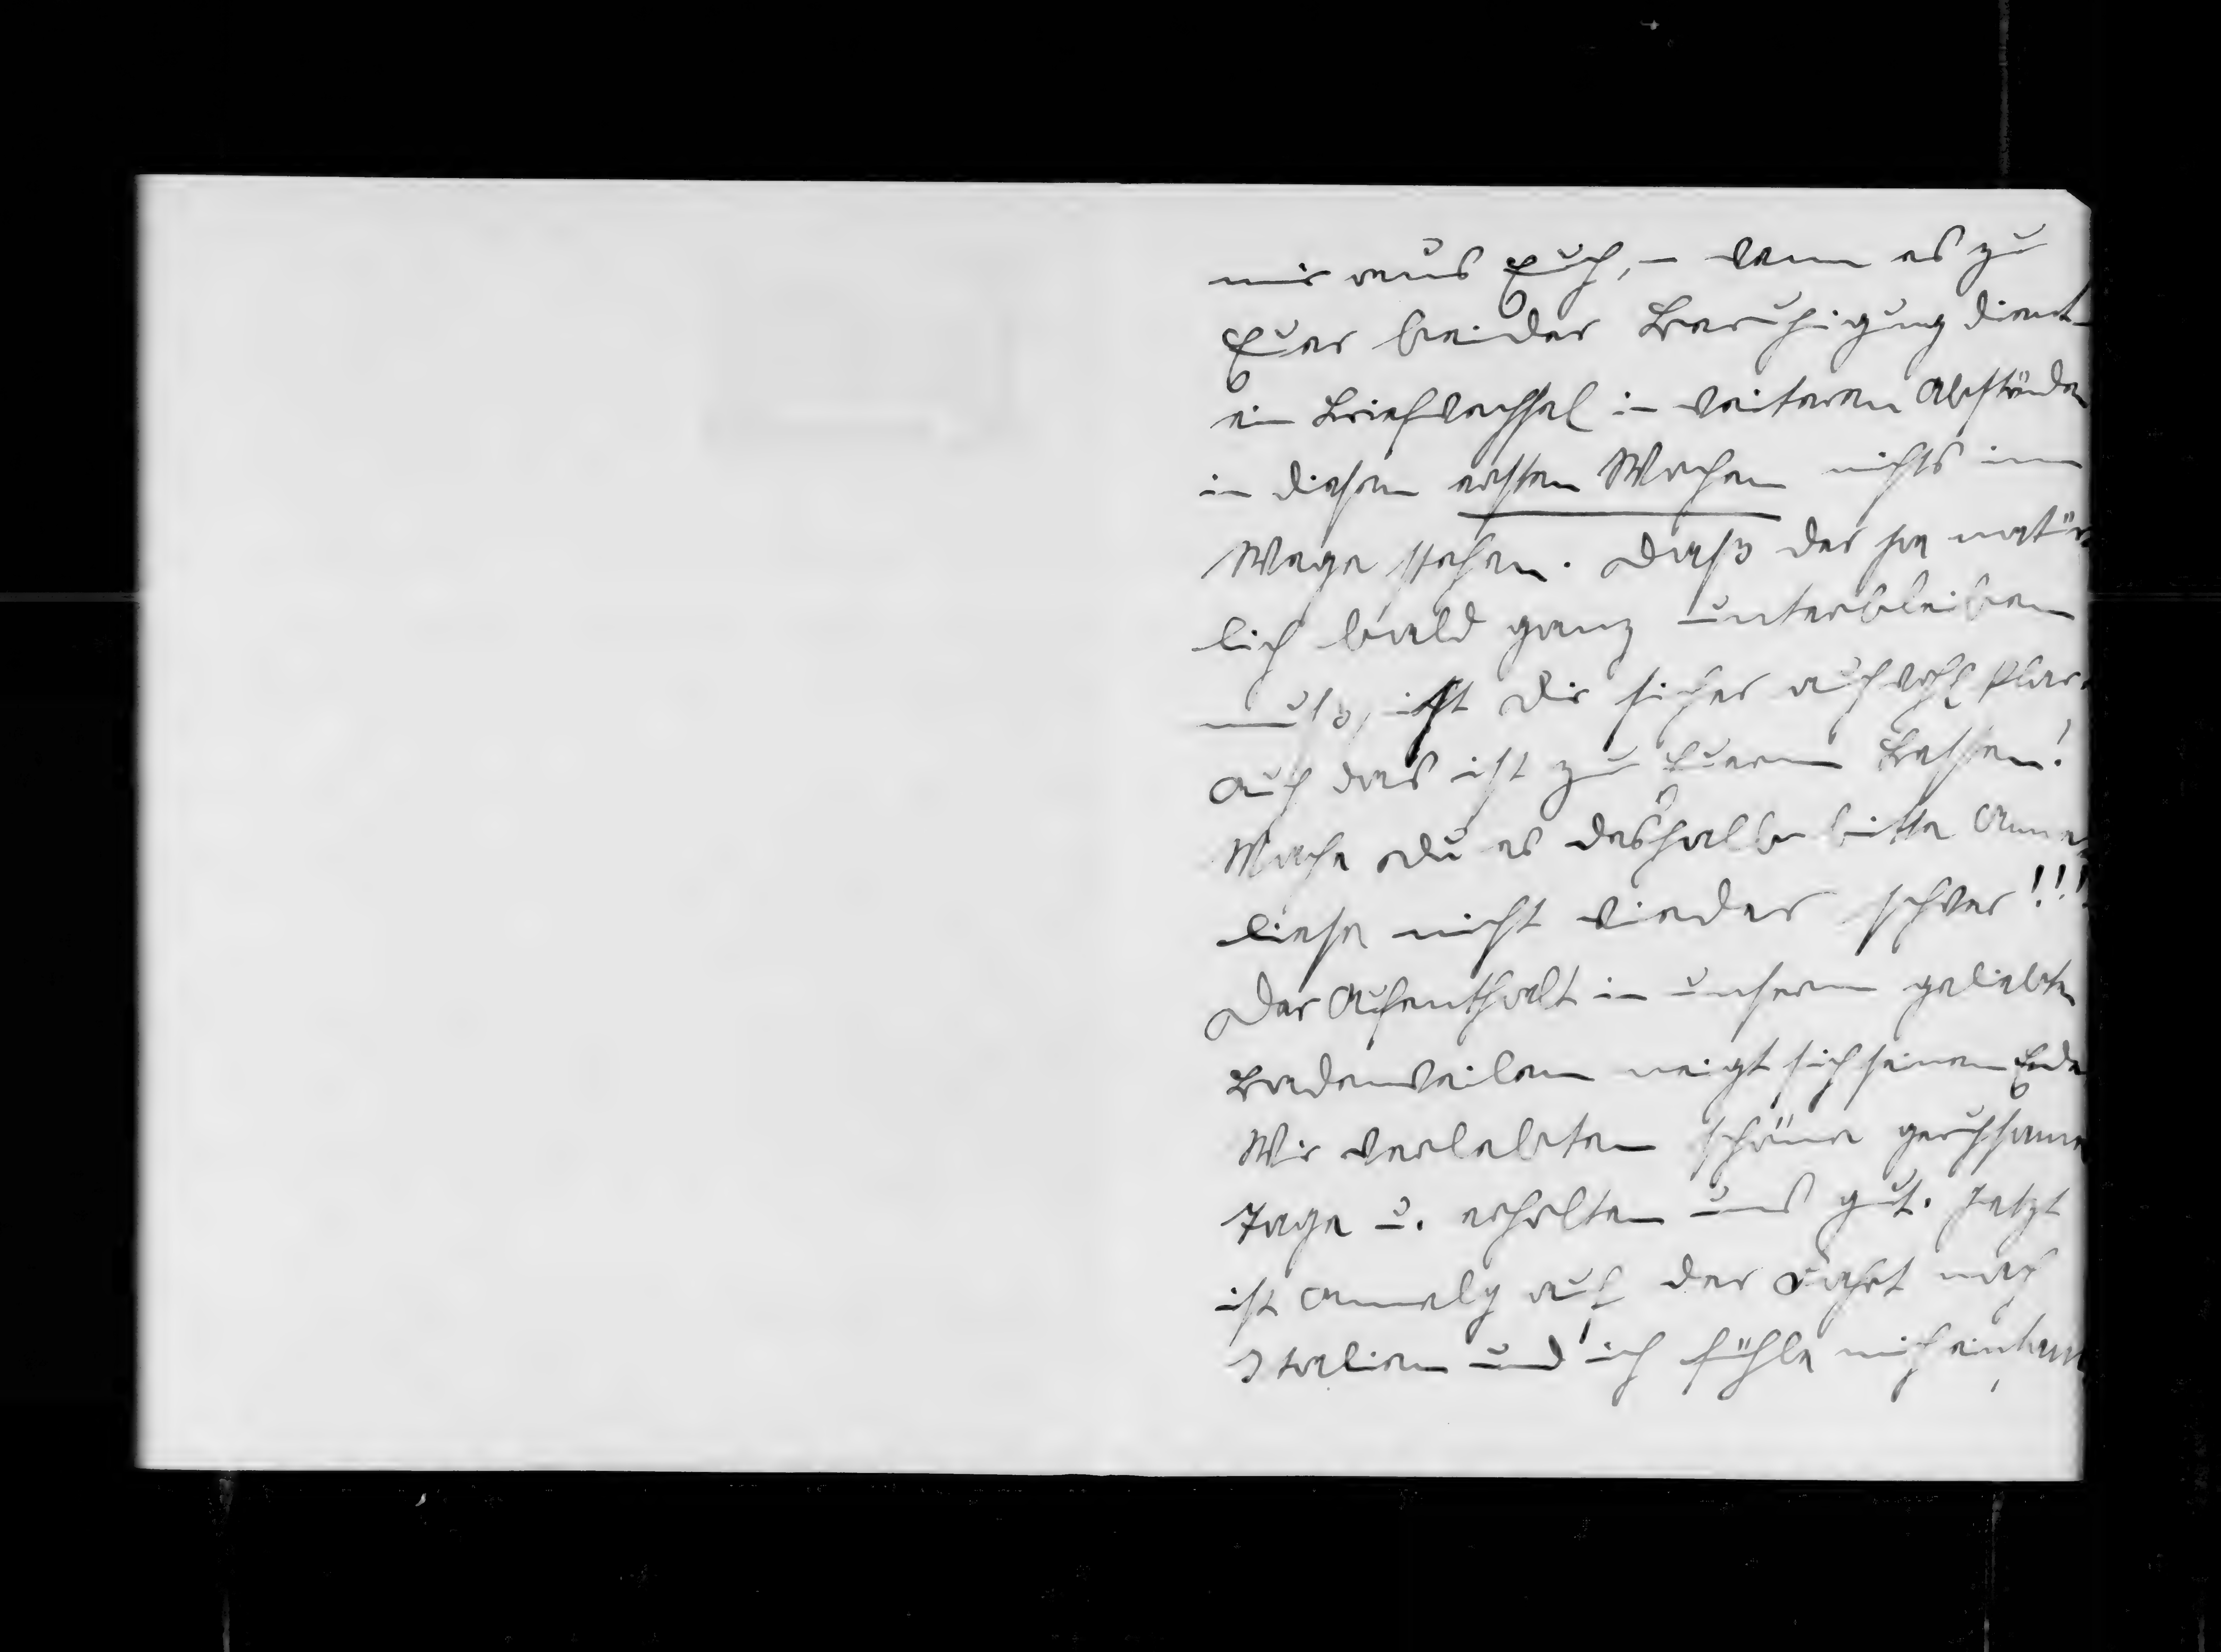 mir aus Euch, – wenn es zu
Euer beider Beruhigung dient –
ein Briefwechsel in weiteren Abständen
in diesen ersten Wochen nichts im
Wege stehen. Daß das ja natür
lich bald ganz unterbleiben
muß, ist Dir sicher auch wohl klar.
Auch das ist zu Euerm Besten!
Mache Du es deshalb bitte Anne
liese nicht wieder schwer!!!
Der Aufenthalt in unserm geliebten
Badenweilern neigt sich seinem Ende
Wir verlebten schöne geruhsame
Tage u. erholten uns gut. Jetzt
ist Annely auf der Fahrt nach
Italien und ich fühle mich einsam